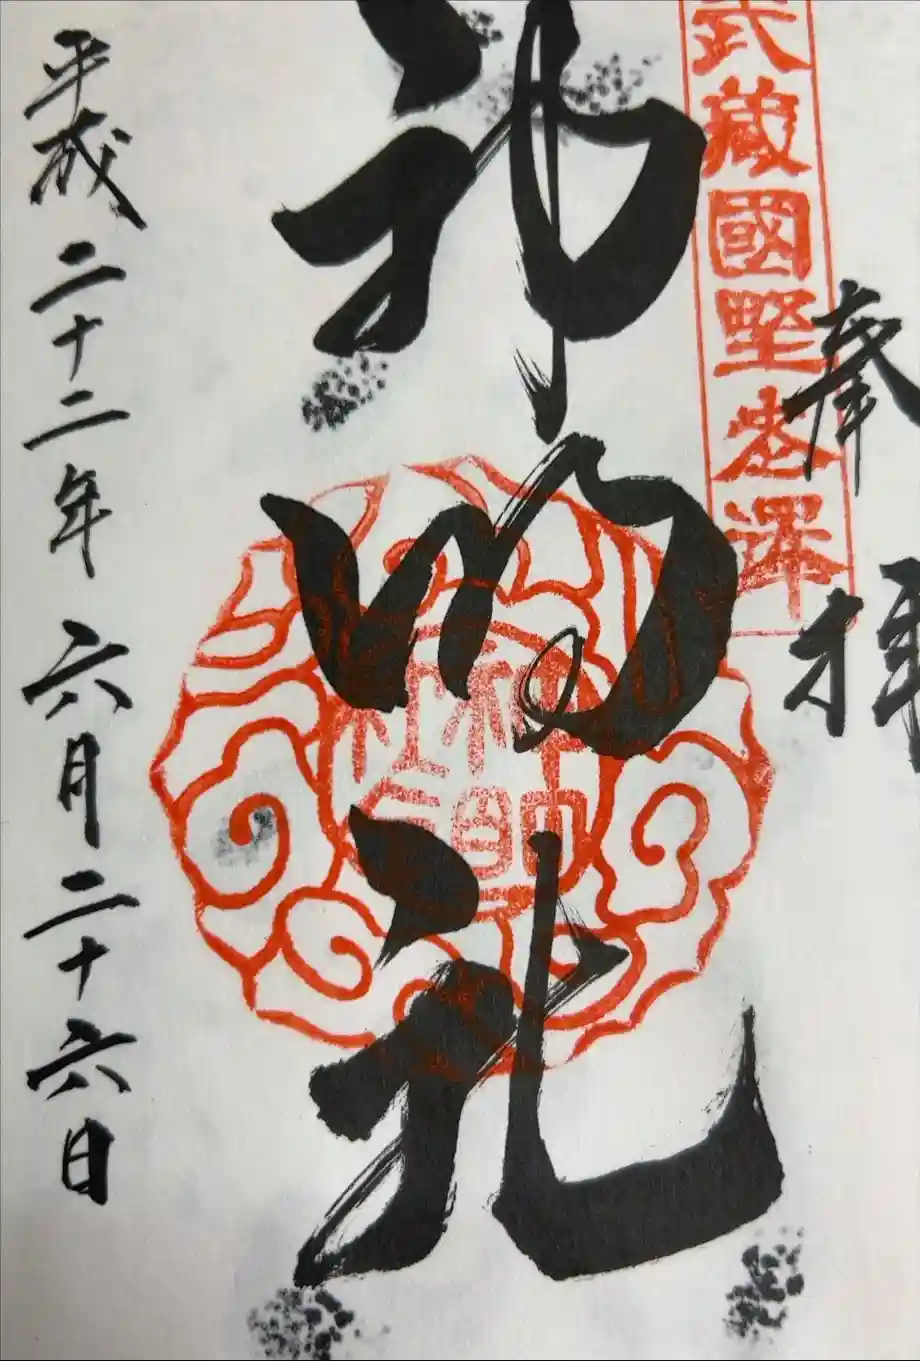 奉拝
武藏國野老澤
神明社
平成二十二年六月二十六日